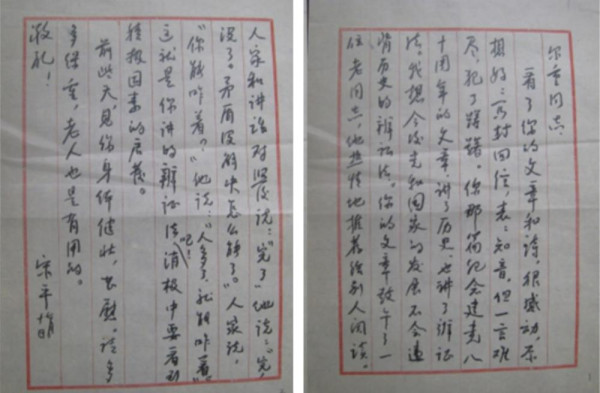 尔重同志:
看了你的文章和诗,很感动,
写封回信,表:知音,但一言难
尽,犯了踌躇。你那篇纪念建党八
十周年的文章,讲了历史,也讲了辩证
法。我想今后党和国家的发展不会违
背历史的辩证法。你的文章 了一
位老同志,他热情地推荐给别人阅读。
人家和 对 说:“完了”他说:“完
没了。矛盾没解决怎么能了。”人家说:
“你能咋着?”他说:“人多了,就能咋着”
这就是你讲的辩证法吧!消极中要看到
积极因素的启发。
前些天,见你身体健壮,甚慰。请多
多保重,老人也是有用的。
敬礼!
宋平